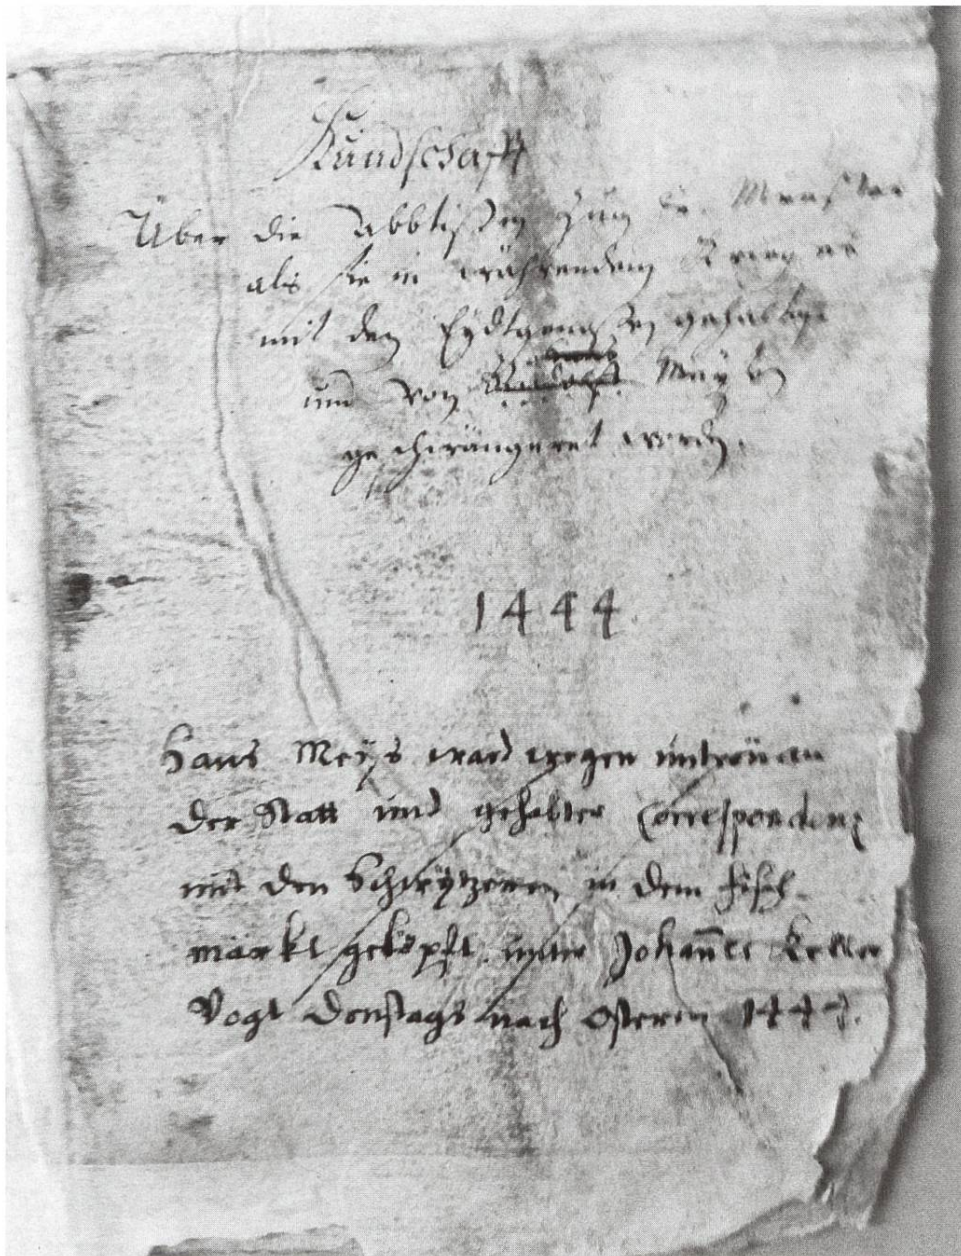 Kundschafft
Über die Abbtißen zum fr. Münster
als sie in währendem Krieg es
mit den Eydtgenoßen gehalten
und von Meyen
geschwängeret worden.
1444
Hans Meÿs ward wegen untreü an
der Statt und gehabter Correspondenz
mit den Schwÿtzeren in dem fisch-
märkt geköpft. unter Johanes Keller
Vogt Donstags nach Osteren 1444.